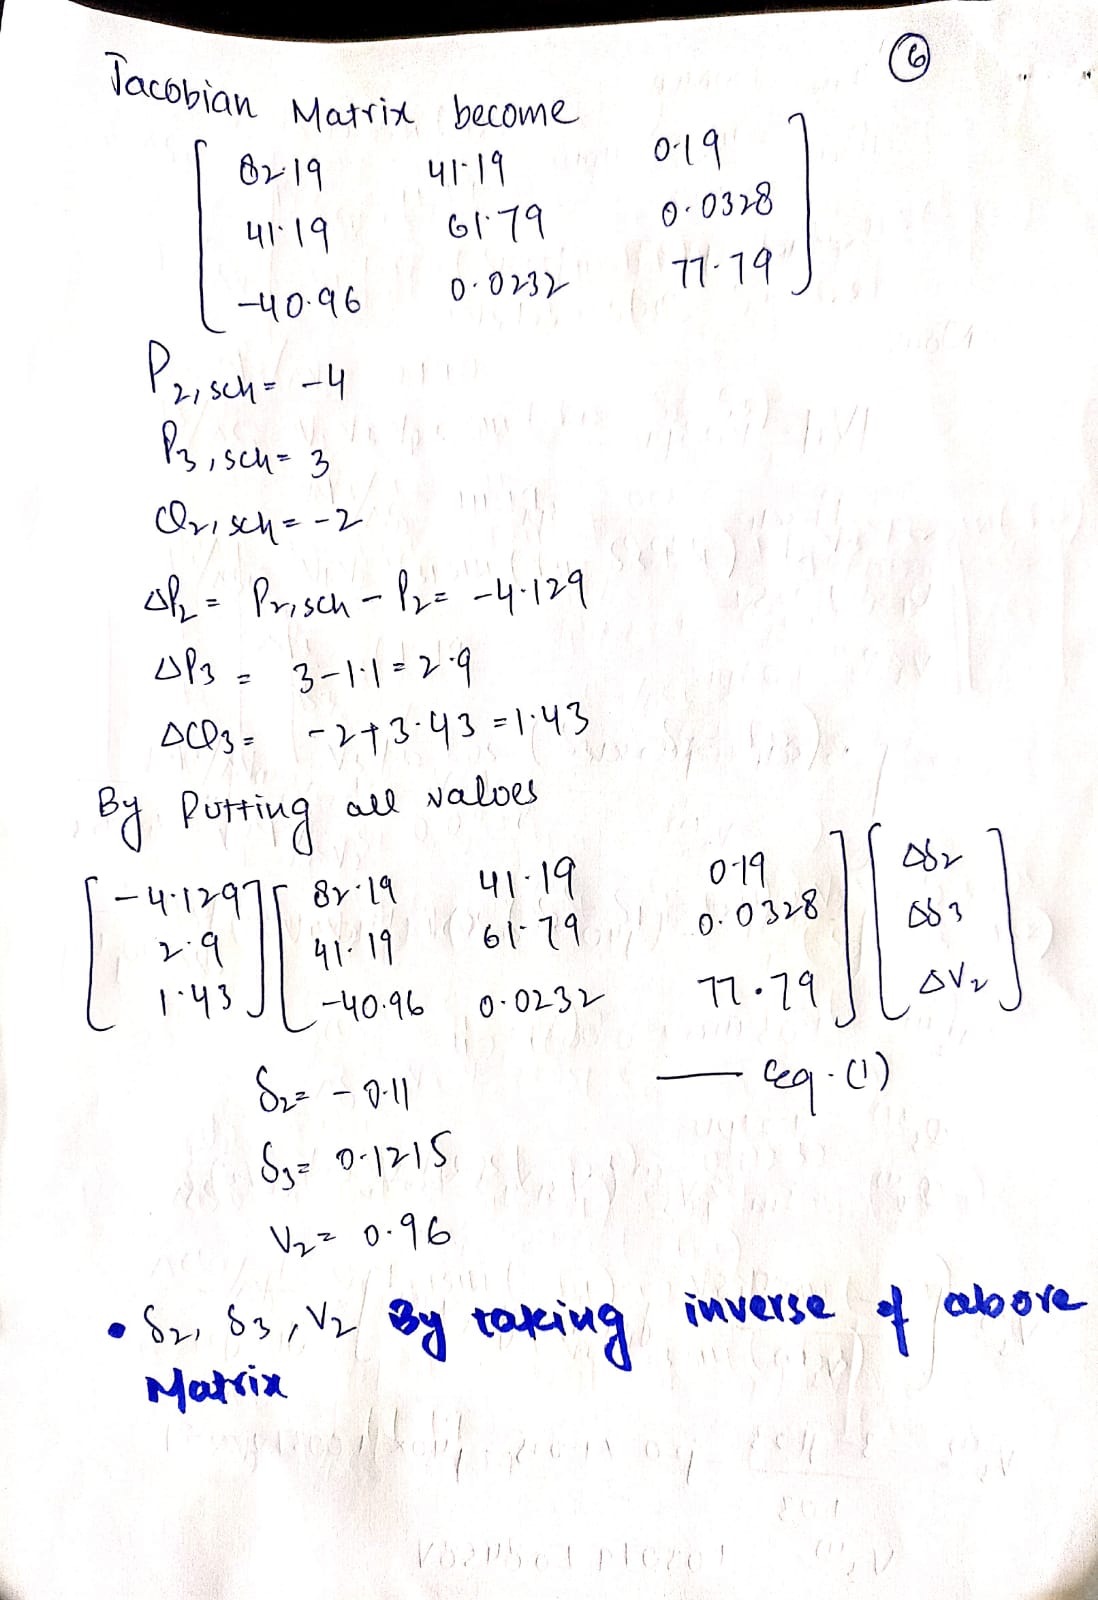 6
Jacobian Matrix become
82.19 41.19 0.19
41.19 61.79 0.0328
-40.96 0.0232 77.79
P2,sch = -4
P3,sch = 3
Q2,sch = -2
ΔP2 = P2,sch - P2 = -4.129
ΔP3 = 3-1.1 = 2.9
ΔQ3 = -2+3.43 = 1.43
By Putting all values
[-4.129 [82.19 41.19 0.19 [Δδ2
2.9 41.19 61.79 0.0328 Δδ3
1.43] -40.96 0.0232 77.79] ΔV2]
δ2 = -0.11 — eq.(1)
δ3 = 0.1215
V2 = 0.96
• δ2, δ3, V2 By taking inverse of above
Matrix